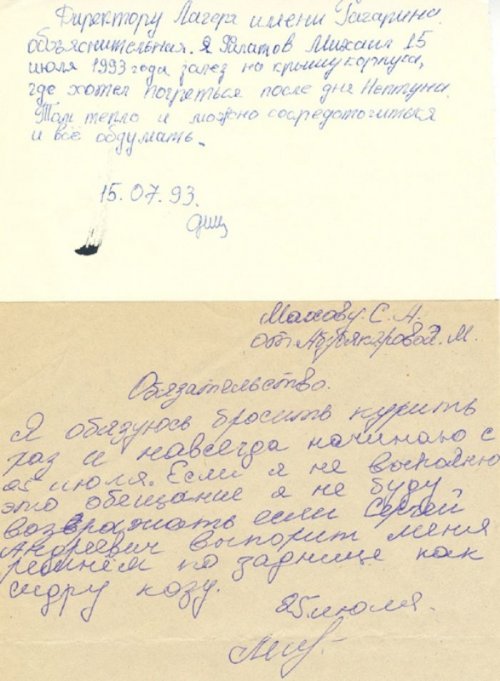 Директору Лагера имени Гагарина.
объяснительная. Я Филатов Михаил 15
июля 1993 года залез на крышу корпуса,
где хотел погреться после дня Нептуна.
Там тепло и можно сосредоточиться
и всё обдумать.
15.07.93.
Махову. С. А.
от М.
Обязательство.
Я обязуюсь бросить курить
раз и навсегда начинаю с
25 июля. Если я не выполню
это обещание я не буду
возвражать если Сергей
Андреевич выпорит меня
ремнём по заднице как
сидру козу.
25 июля.